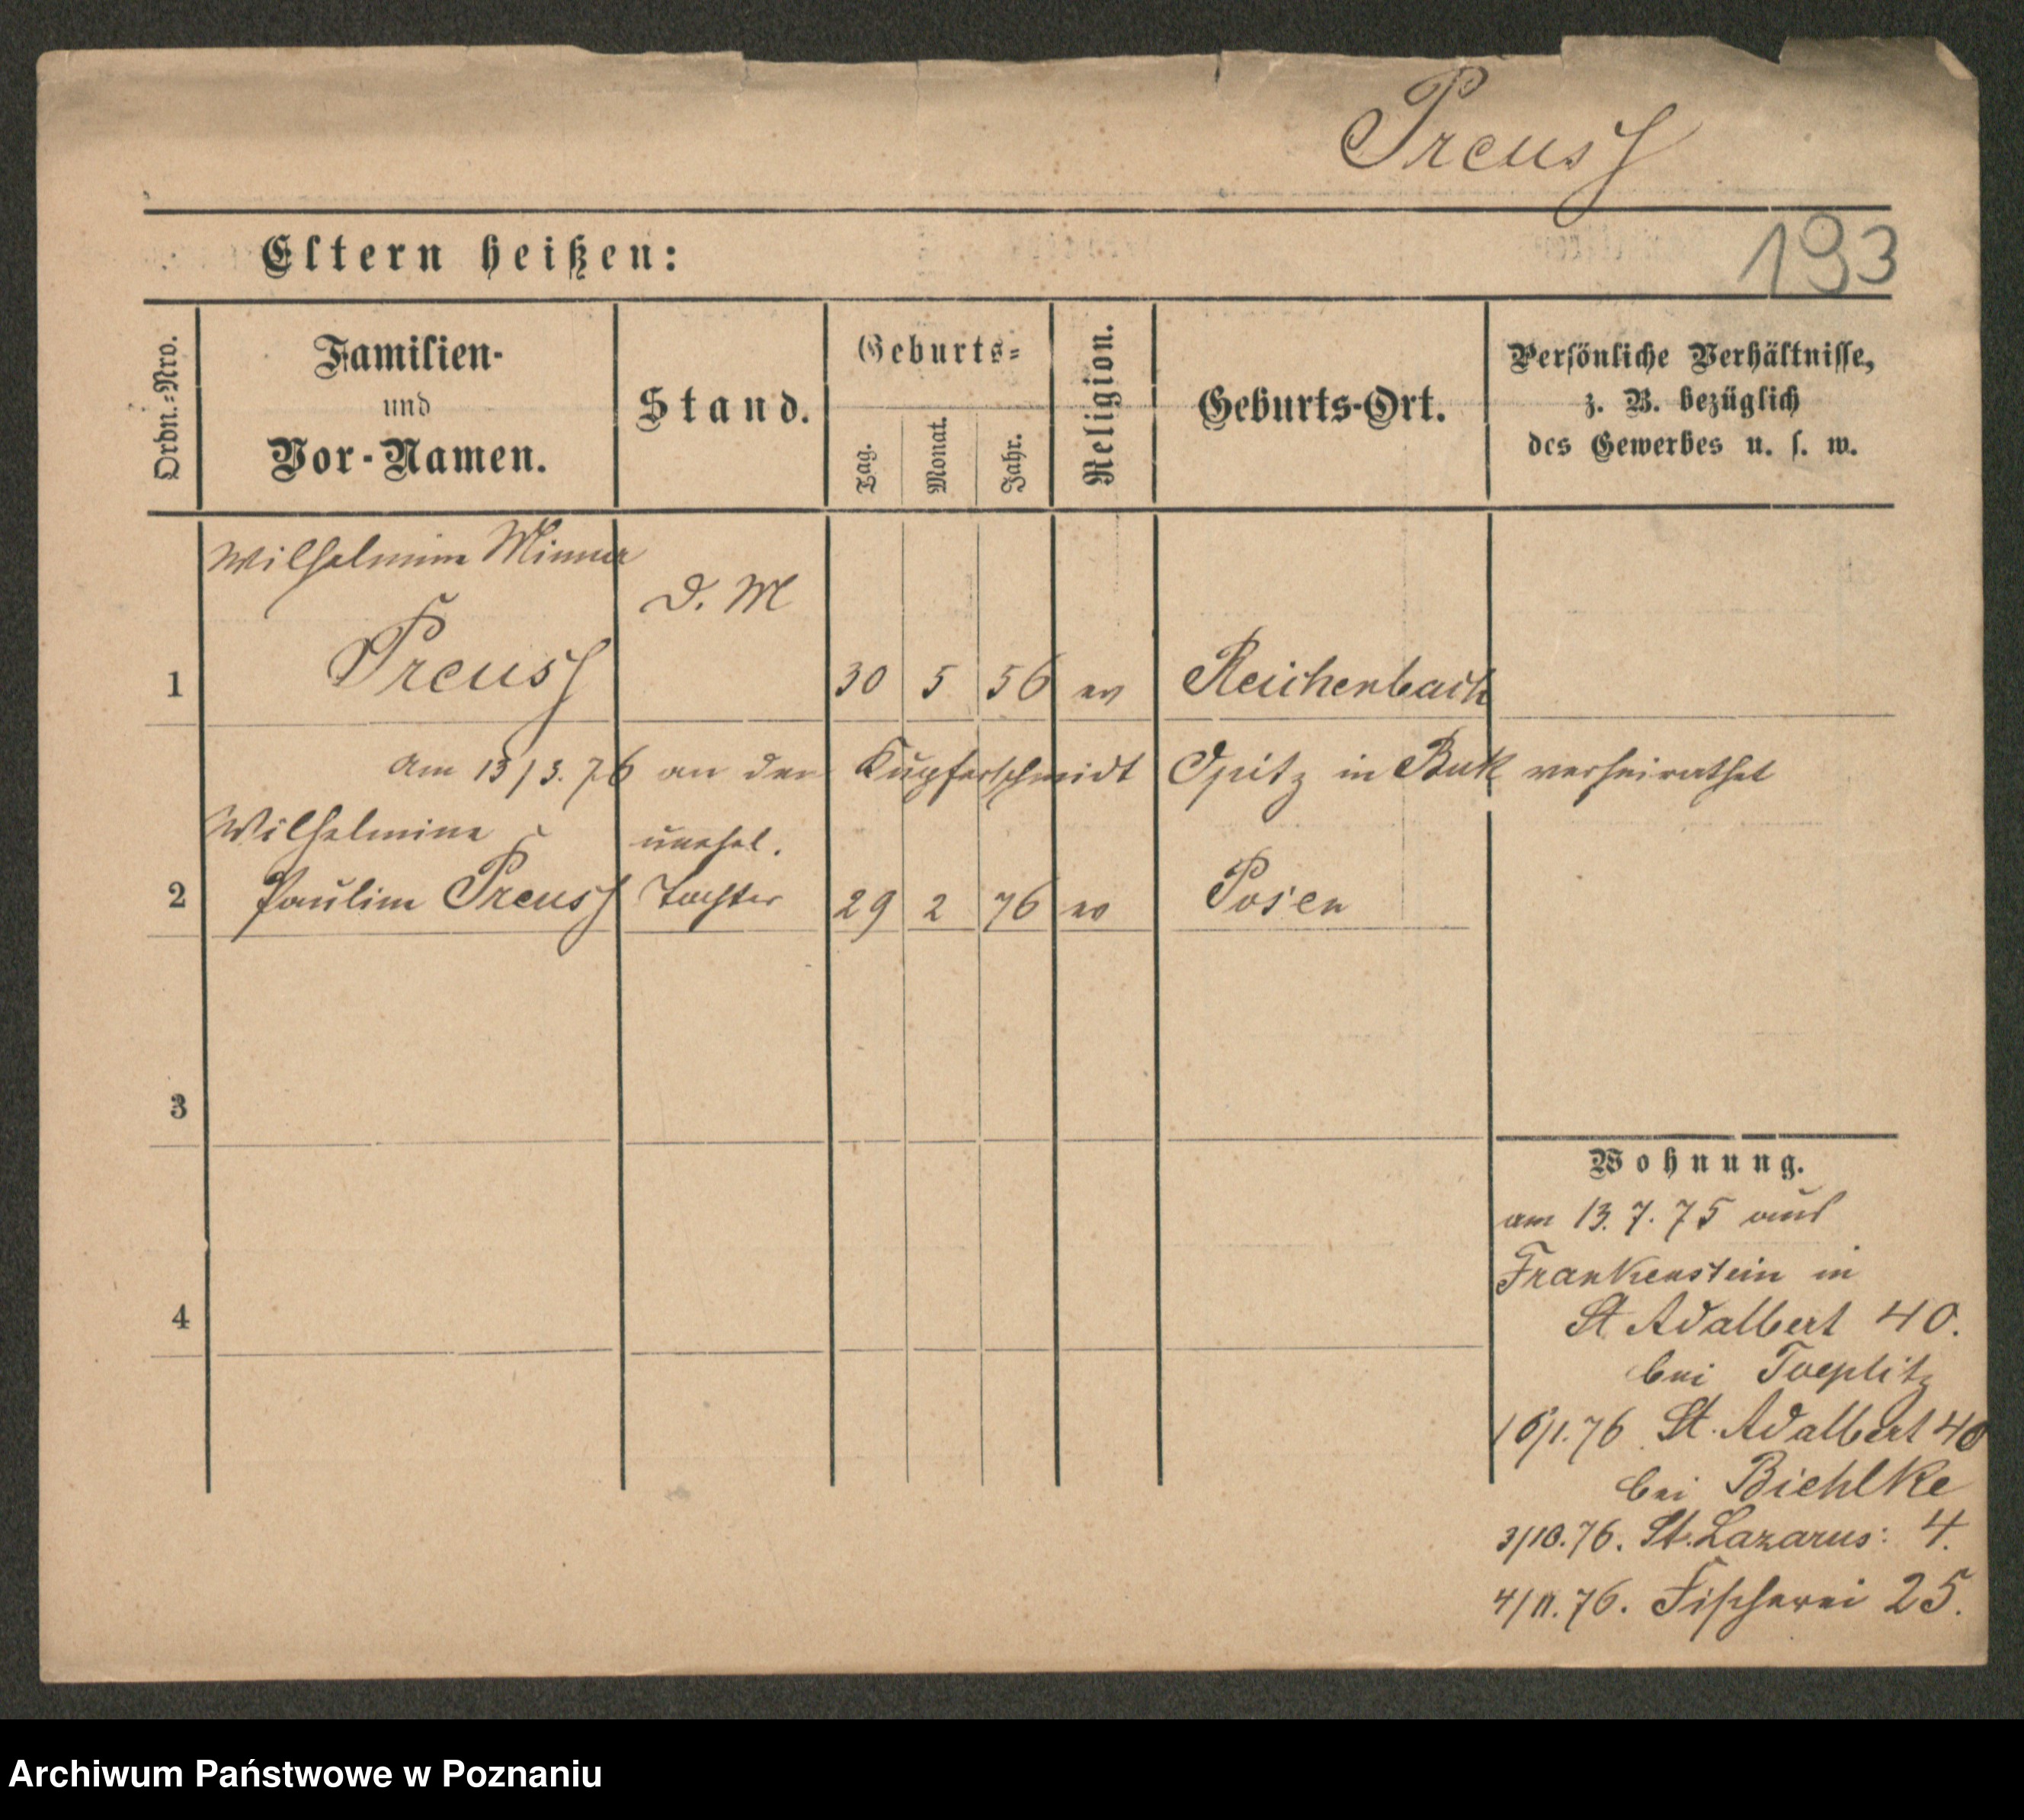 Preuss
193
Eltern heißen:
Ordn.-Nro.
Familien-
und
Vor-Namen.
Stand.
Geburts-
Tag.
Monat.
Jahr.
Religion.
Geburts-Ort.
Persönliche Verhältnisse,
z. B. bezüglich
des Gewerbes u. s. w.
Wilhelmine Minna
D. M
1 Preuss 30 5 56 ev Reichenbach
am 13/3. 76 an den Kupferschmidt Opitz in Buk verheirathet
Wilhelmine unehel.
2 Pauline Preuss Tochter 29 2 76 ev Posen
3
4
Wohnung.
am 13. 7. 75 aus
Frankenstein in
St Adalbert 40.
bei Toeplitz
/1. 76 St. Adalbert 40
bei Biehlke
3/10. 76. St. Lazarus: 4.
4/11. 76. Fischerei 25.
Archiwum Państwowe w Poznaniu